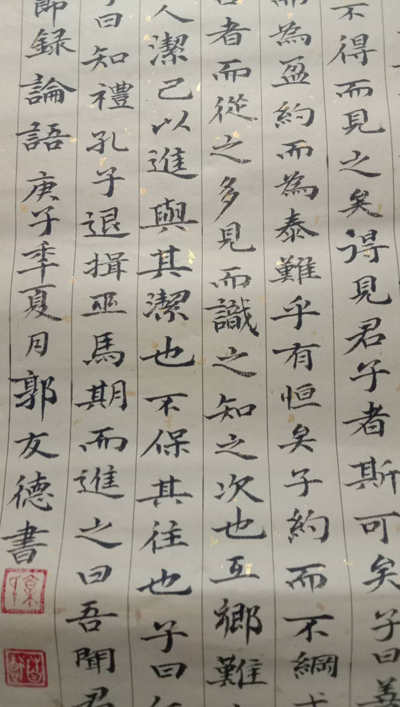 不得而見之矣得見君子者斯可矣子曰善
而為盈約而為泰難乎有恒矣子約而不綱
者而從之多見而識之知之次也互鄉難
人潔己以進與其潔也不保其往也子曰
曰知禮孔子退揖巫馬期而進之曰吾聞君
節録論語庚子季夏月郭友德書